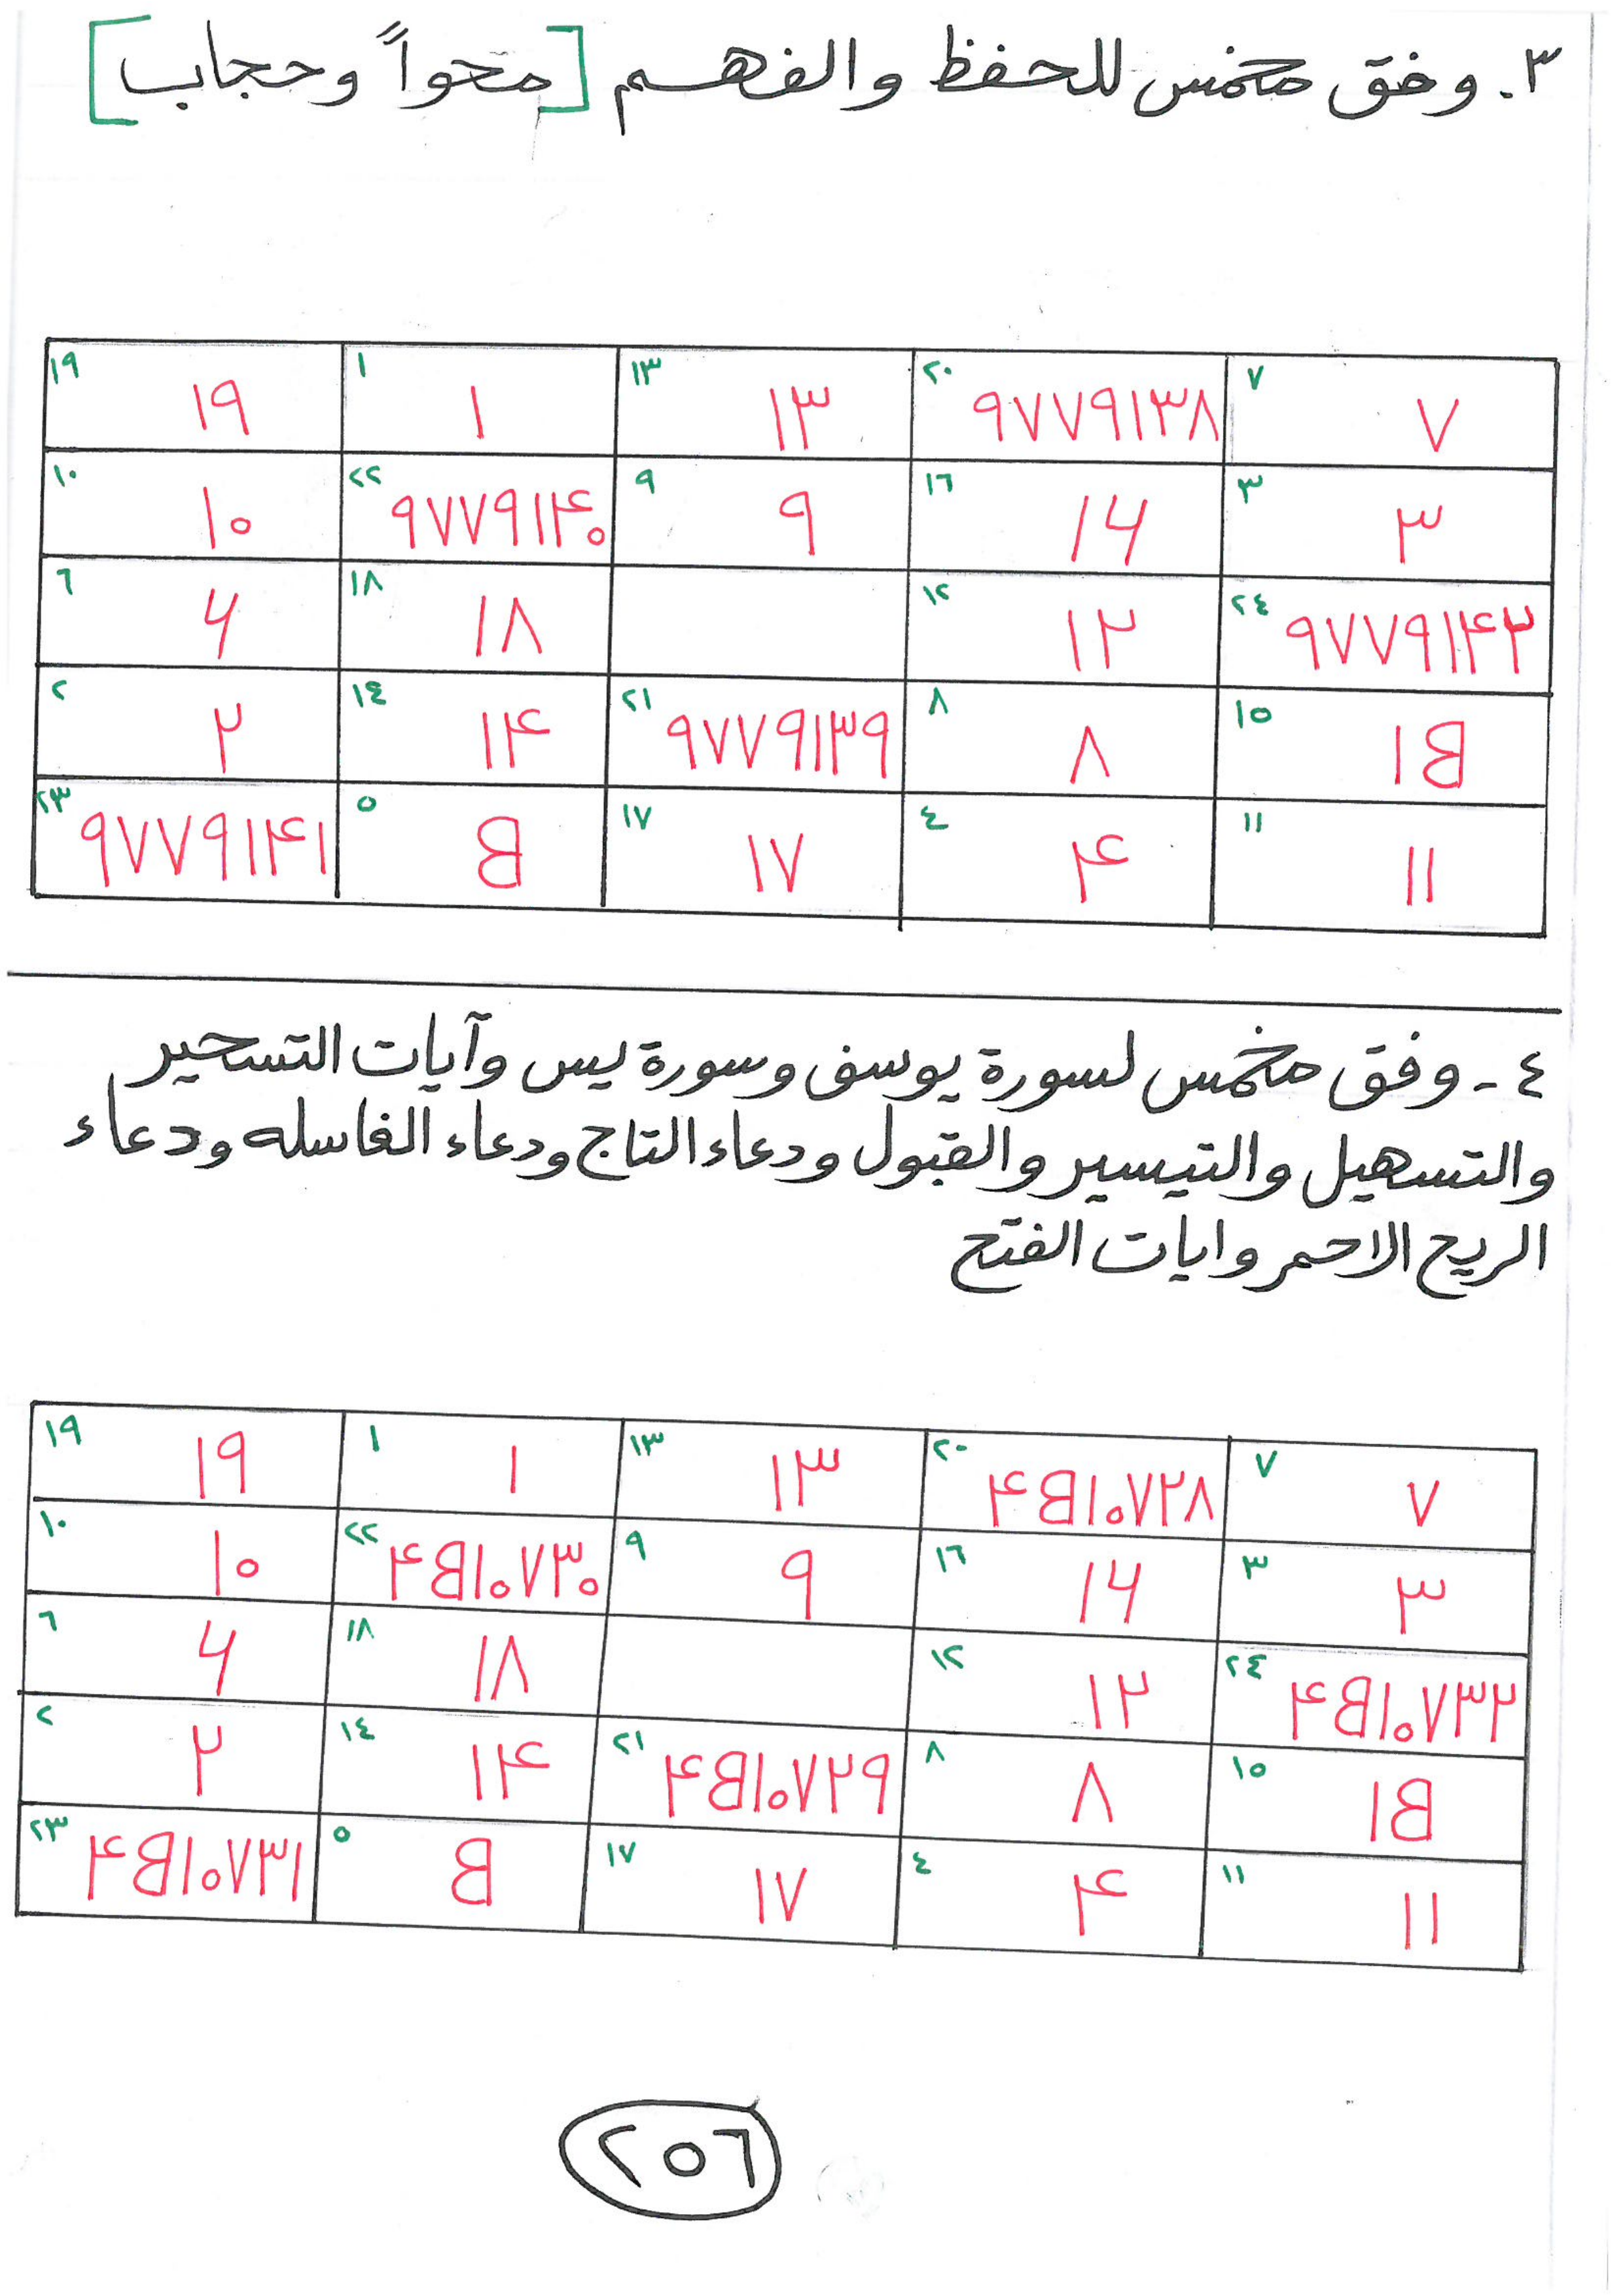 ٣. وفق مخمس للحفظ والفهم [محواً وحجاب]
٧ ٧ ٢٠ ٩٧٧٩١٣٨ ١٣ ١٣ ١ ١ ١٩ ١٩
٣ ٣ ١٦ ١۶ ٩ ٩ ٢٢ ٩٧٧٩١۴٠ ١٠ ١٠
٢٤ ٩٧٧٩١۴٢ ١٢ ١٢ ١٨ ١٨ ٦ ۶
١٥ ١B ٨ ٨ ٢١ ٩٧٧٩١٣٩ ١٤ ١۴ ٢ ٢
١١ ١١ ٤ ۴ ١٧ ١٧ ٥ B ٢٣ ٩٧٧٩١۴١
٤ - وفق مخمس لسورة يوسف وسورة يس وآيات التسخير
والتسهيل والتيسير والقبول ودعاء التاج ودعاء الغاسله ودعاء
الريح الاحمر وايات الفتح
٧ ٧ ٢٠ ۴B١٠٧٢٨ ١٣ ١٣ ١ ١ ١٩ ١٩
٣ ٣ ١٦ ١۶ ٩ ٩ ٢٢ ۴B١٠٧٣٠ ١٠ ١٠
٢٤ ۴B١٠٧٣٢ ١٢ ١٢ ١٨ ١٨ ٦ ۶
١٥ ١B ٨ ٨ ٢١ ۴B١٠٧٢٩ ١٤ ١۴ ٢ ٢
١١ ١١ ٤ ۴ ١٧ ١٧ ٥ B ٢٣ ۴B١٠٧٣١
٢٥٦